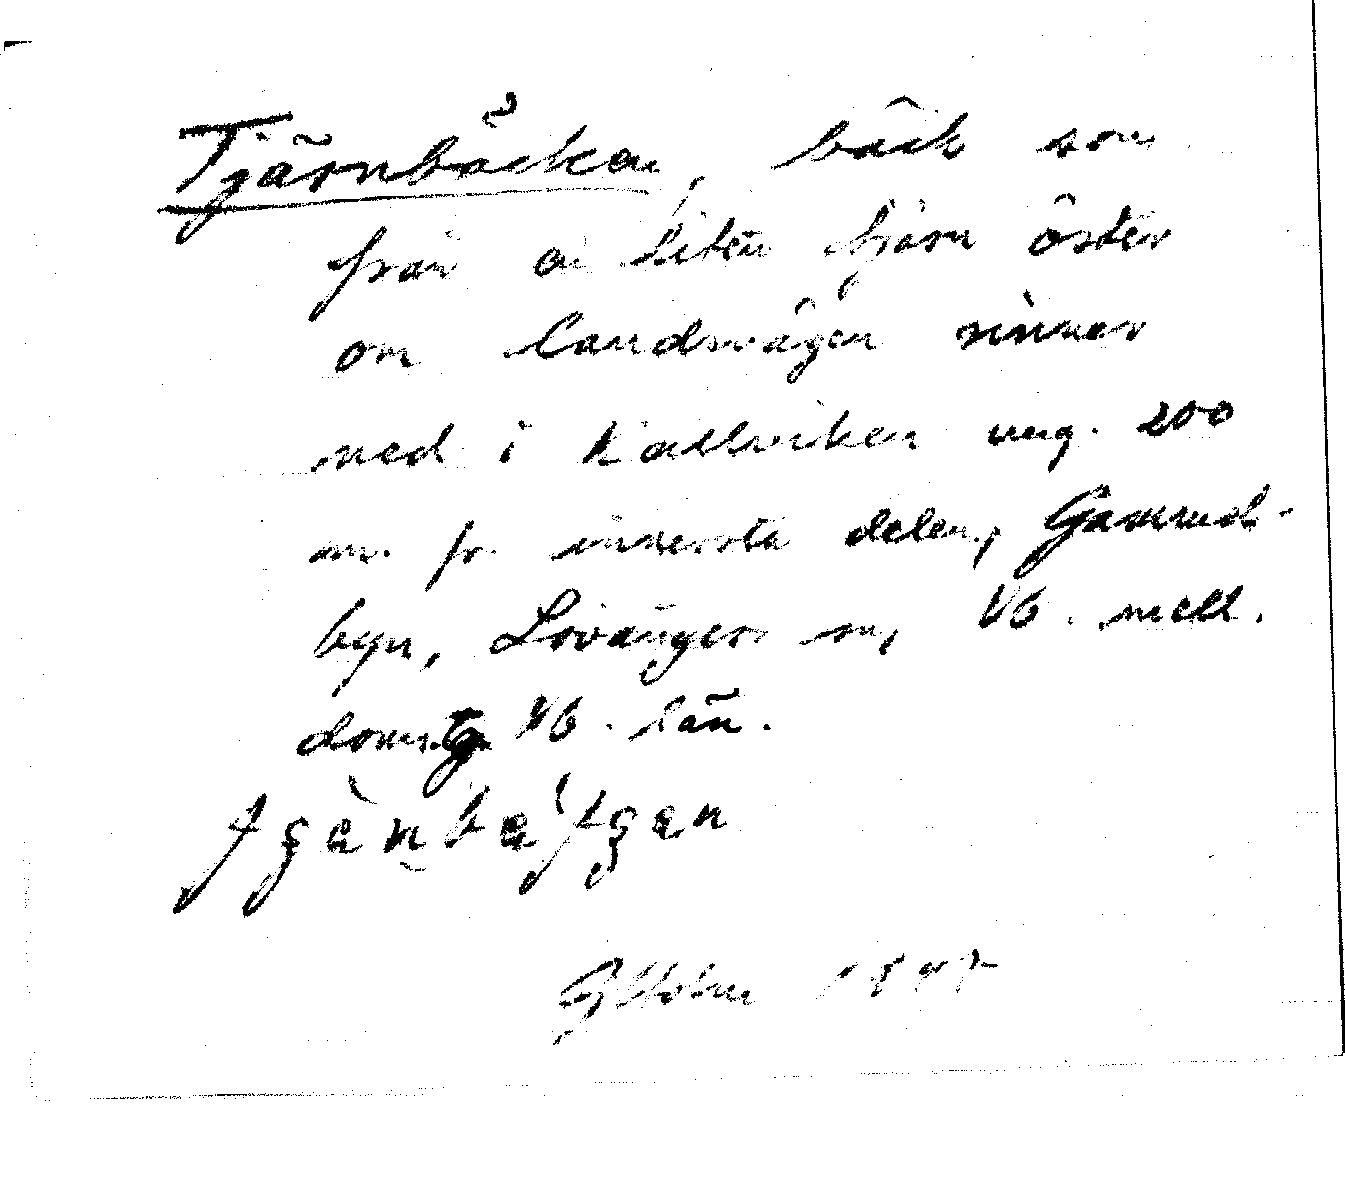 Tjärnbäcken, bäck som
från en liten tjärn öster
om landsvägen rinner
ned i Kallviken ung. 200
m. fr. innersta delen, Gammel-
byn, Lövångers sn, Vb. mell.
doms. Vb. län.